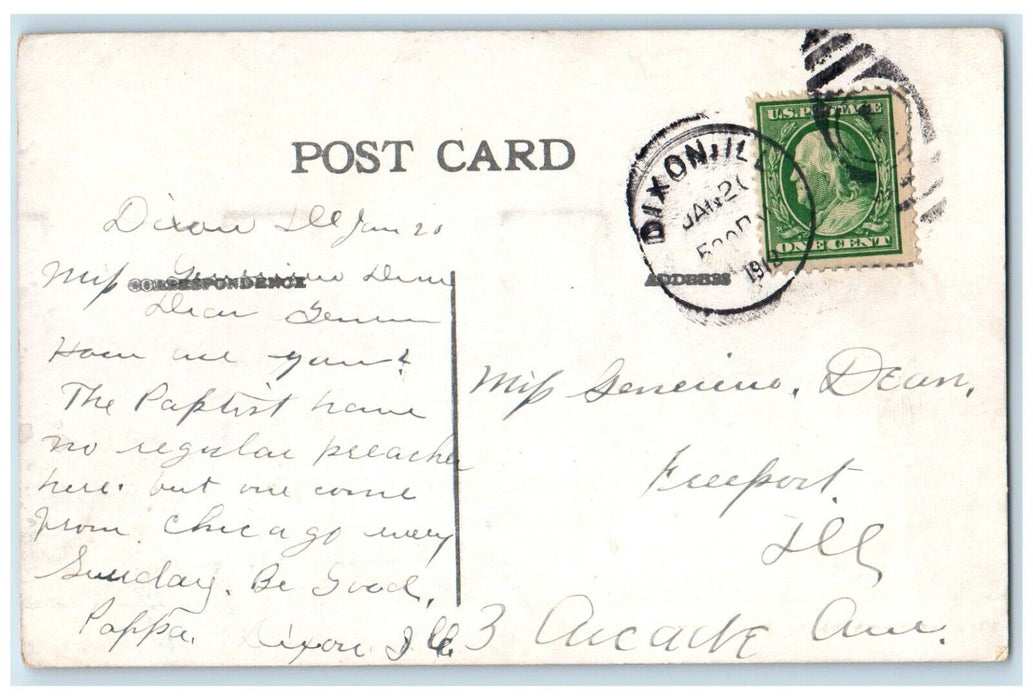 POST CARD
U.S. POSTAGE
ONE CENT
DIXON, ILL
JAN 20
191
CORRESPONDENCE
ADDRESS
Dixon Ill Jan 20
Miss Dean
Dear
How are you?
The Paptist have
no regular preacher
here. but one come
from Chicago every
Sunday. Be Good.
Pappa. Dixon Ill
Miss Genevieve. Dean,
Freeport.
Ill
3 Arcade Ave.